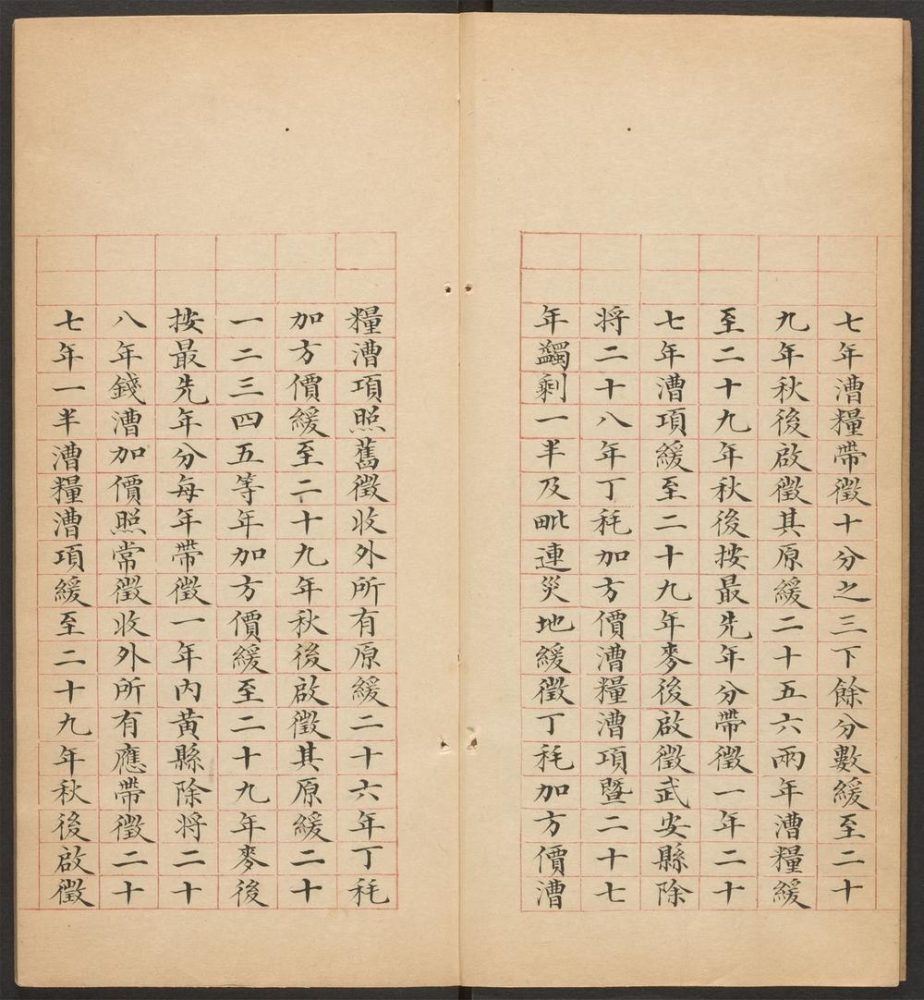 七年漕糧帶徵十分之三下餘分數緩至二十
九年秋後啟徵其原緩二十五六兩年漕糧緩
至二十九年秋後按最先年分帶徵一年二十
七年漕項緩至二十九年麥後啟徵武安縣除
將二十八年丁秏加方價漕糧漕項暨二十七
年蠲剩一半及毗連災地緩徵丁秏加方價漕
糧漕項照舊徵收外所有原緩二十六年丁秏
加方價緩至二十九年秋後啟徵其原緩二十
一二三四五等年加方價緩至二十九年麥後
按最先年分每年帶徵一年內黃縣除將二十
八年錢漕加價照常徵收外所有應帶徵二十
七年一半漕糧漕項緩至二十九年秋後啟徵